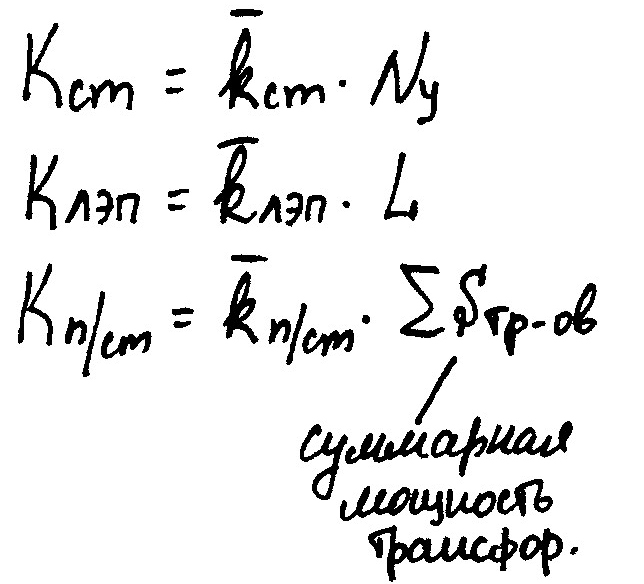 Kст = k̄ст · Nу
Kлэп = k̄лэп · L
Kп/ст = k̄п/ст · ∑Sтр-ов
суммарная
мощность
трансфор.